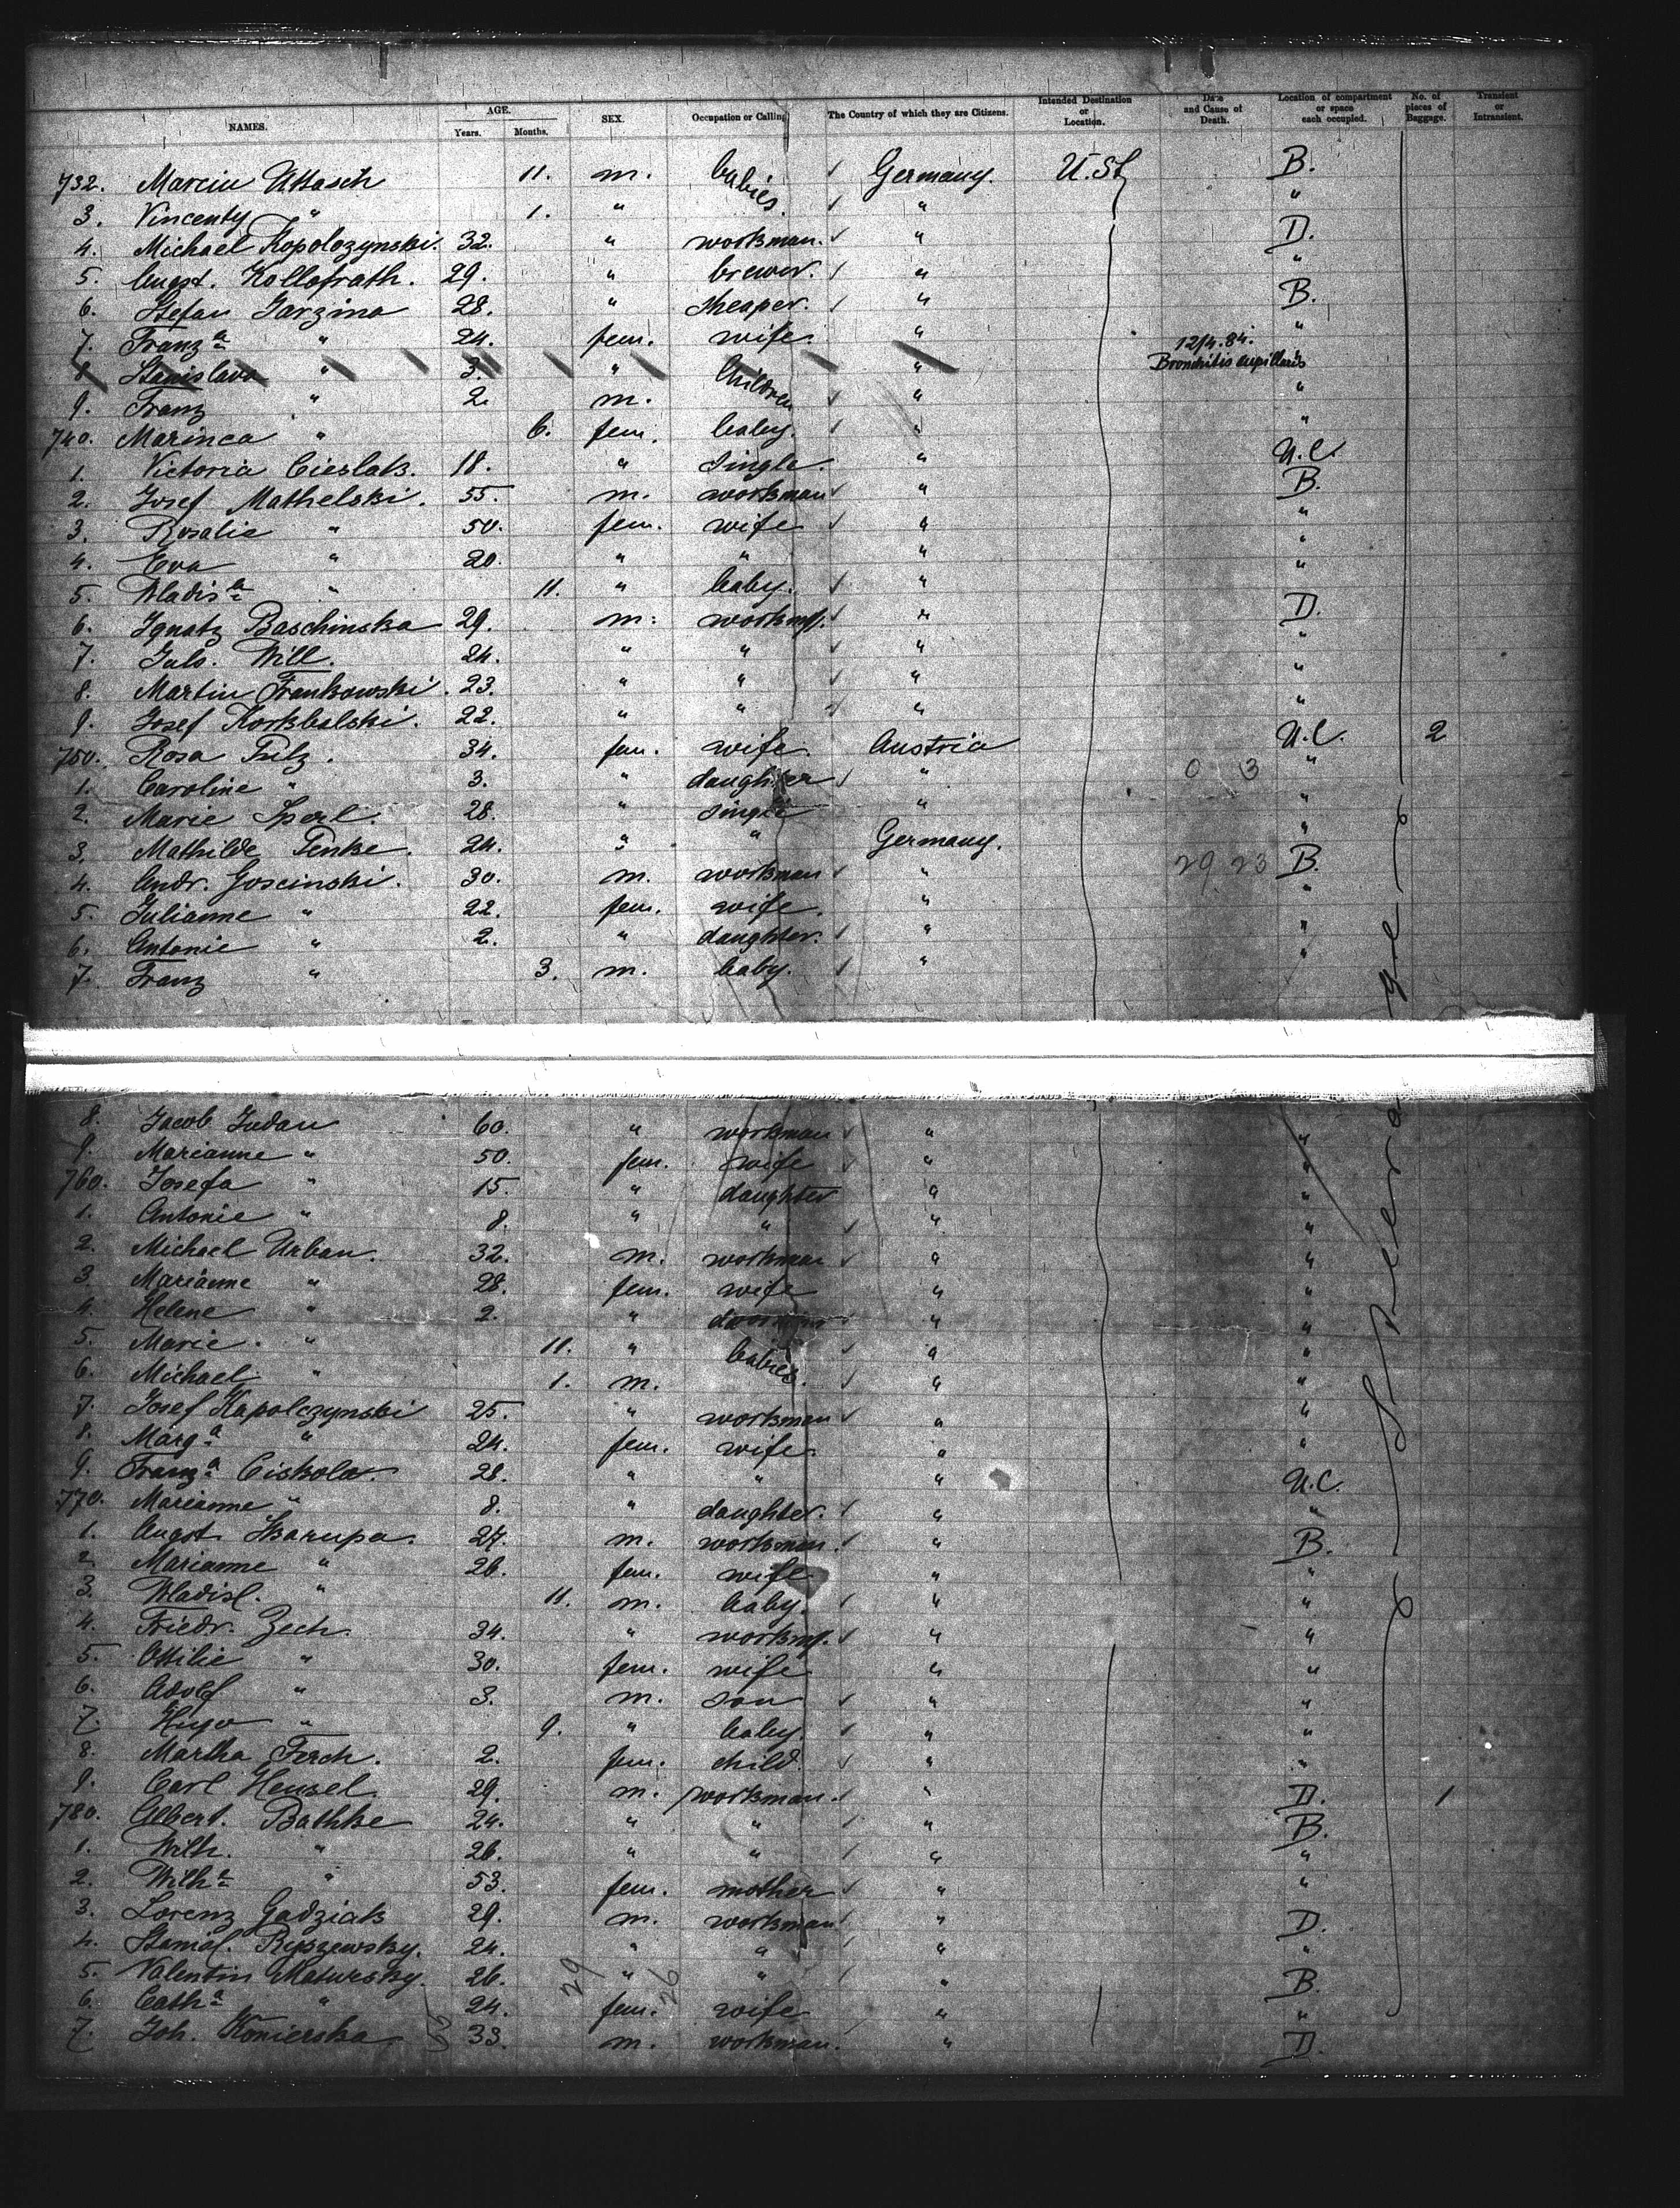 NAMES. AGE. Years. Months. SEX. Occupation or Calling The Country of which they are Citizens. Intended Destination or Location. Date and Cause of Death. Location of compartment or space each occupied. No. of pieces of Baggage. Transient or Intransient.
732. Marcin Uttasch 11. m. babies. Germany. U.St. B.
3. Vincenty " 1. " " "
4. Michael Kopolczynski. 32. " workman. " D.
5. Augst. Kollofrath. 29. " brewer. " "
6. Stefan Garzina 28. " sheaper. " B.
7. Franz.a " 24. fem. wife " "
8 Stanislava " 3. " children " 12/4.84. Bronchitis capillaris "
9. Franz " 2. m. " "
740. Marinca " 6. fem. baby. " "
1. Victoria Cieslak. 18. " single. " U.C.
2. Josef Mathelski. 55. m. workman " B.
3. Rosalie " 50. fem. wife " "
4. Eva " 20. " " " "
5. Wladis.a " 11. " baby. " "
6. Ignatz Baschinska 29. m. workm. " D.
7. Juls. Will. 24. " " " "
8. Martin Frankowski. 23. " " " "
9. Josef Korkbalski. 22. " " " "
750. Rosa Pulz. 34. fem. wife Austria U.C. 2
1. Caroline " 3. " daughter " 0 3 "
2. Marie Sperl. 28. " single " "
3. Mathilde Tenke. 24. " " Germany. "
4. Andr. Goscinski. 30. m. workman " 29 23 B.
5. Julianne " 22. fem. wife. " "
6. Antonie " 2. " daughter. " "
7. Franz " 3. m. baby. " "
8. Jacob Judan 60. " workman " "
9. Marianne " 50. fem. wife " "
760. Josefa " 15. " daughter " "
1. Antonie " 8. " " " "
2. Michael Urban. 32. m. workman " "
3. Marianne " 28. fem. wife " "
4. Helene " 2. " " "
5. Marie " 11. " babies. " "
6. Michael " 1. m. " "
7. Josef Kapolczynski 25. " workman " "
8. Marg.a " 24. fem. wife. " "
9. Franz.a Ciskola. 28. " " " U.C.
770. Marianne " 8. " daughter. " "
1. Augst. Skarupa. 27. m. workman. " B.
2. Marianne " 26. fem. wife " "
3. Wladisl. " 11. m. baby. " "
4. Friedr. Zech. 34. " workm. " "
5. Ottilie " 30. fem. wife " "
6. Adolf " 3. m. son " "
7. Hugo " 9. " baby. " "
8. Martha Ferch. 2. fem. child. " "
9. Carl Hensel 29. m. workman. " D. 1
780. Albert. Bathke 24. " " " B.
1. Wilh. " 26. " " " "
2. Wilh.a " 53. fem. mother " "
3. Lorenz Gadziak 29. m. workman " D.
4. Stanisl. Ryszewsky. 24. " " " "
5. Valentin Matursky. 26. 29 " 26 " " B.
6. Cath.a " 24. fem. wife " "
7. Joh. Konierska 33. m. workman. " D.